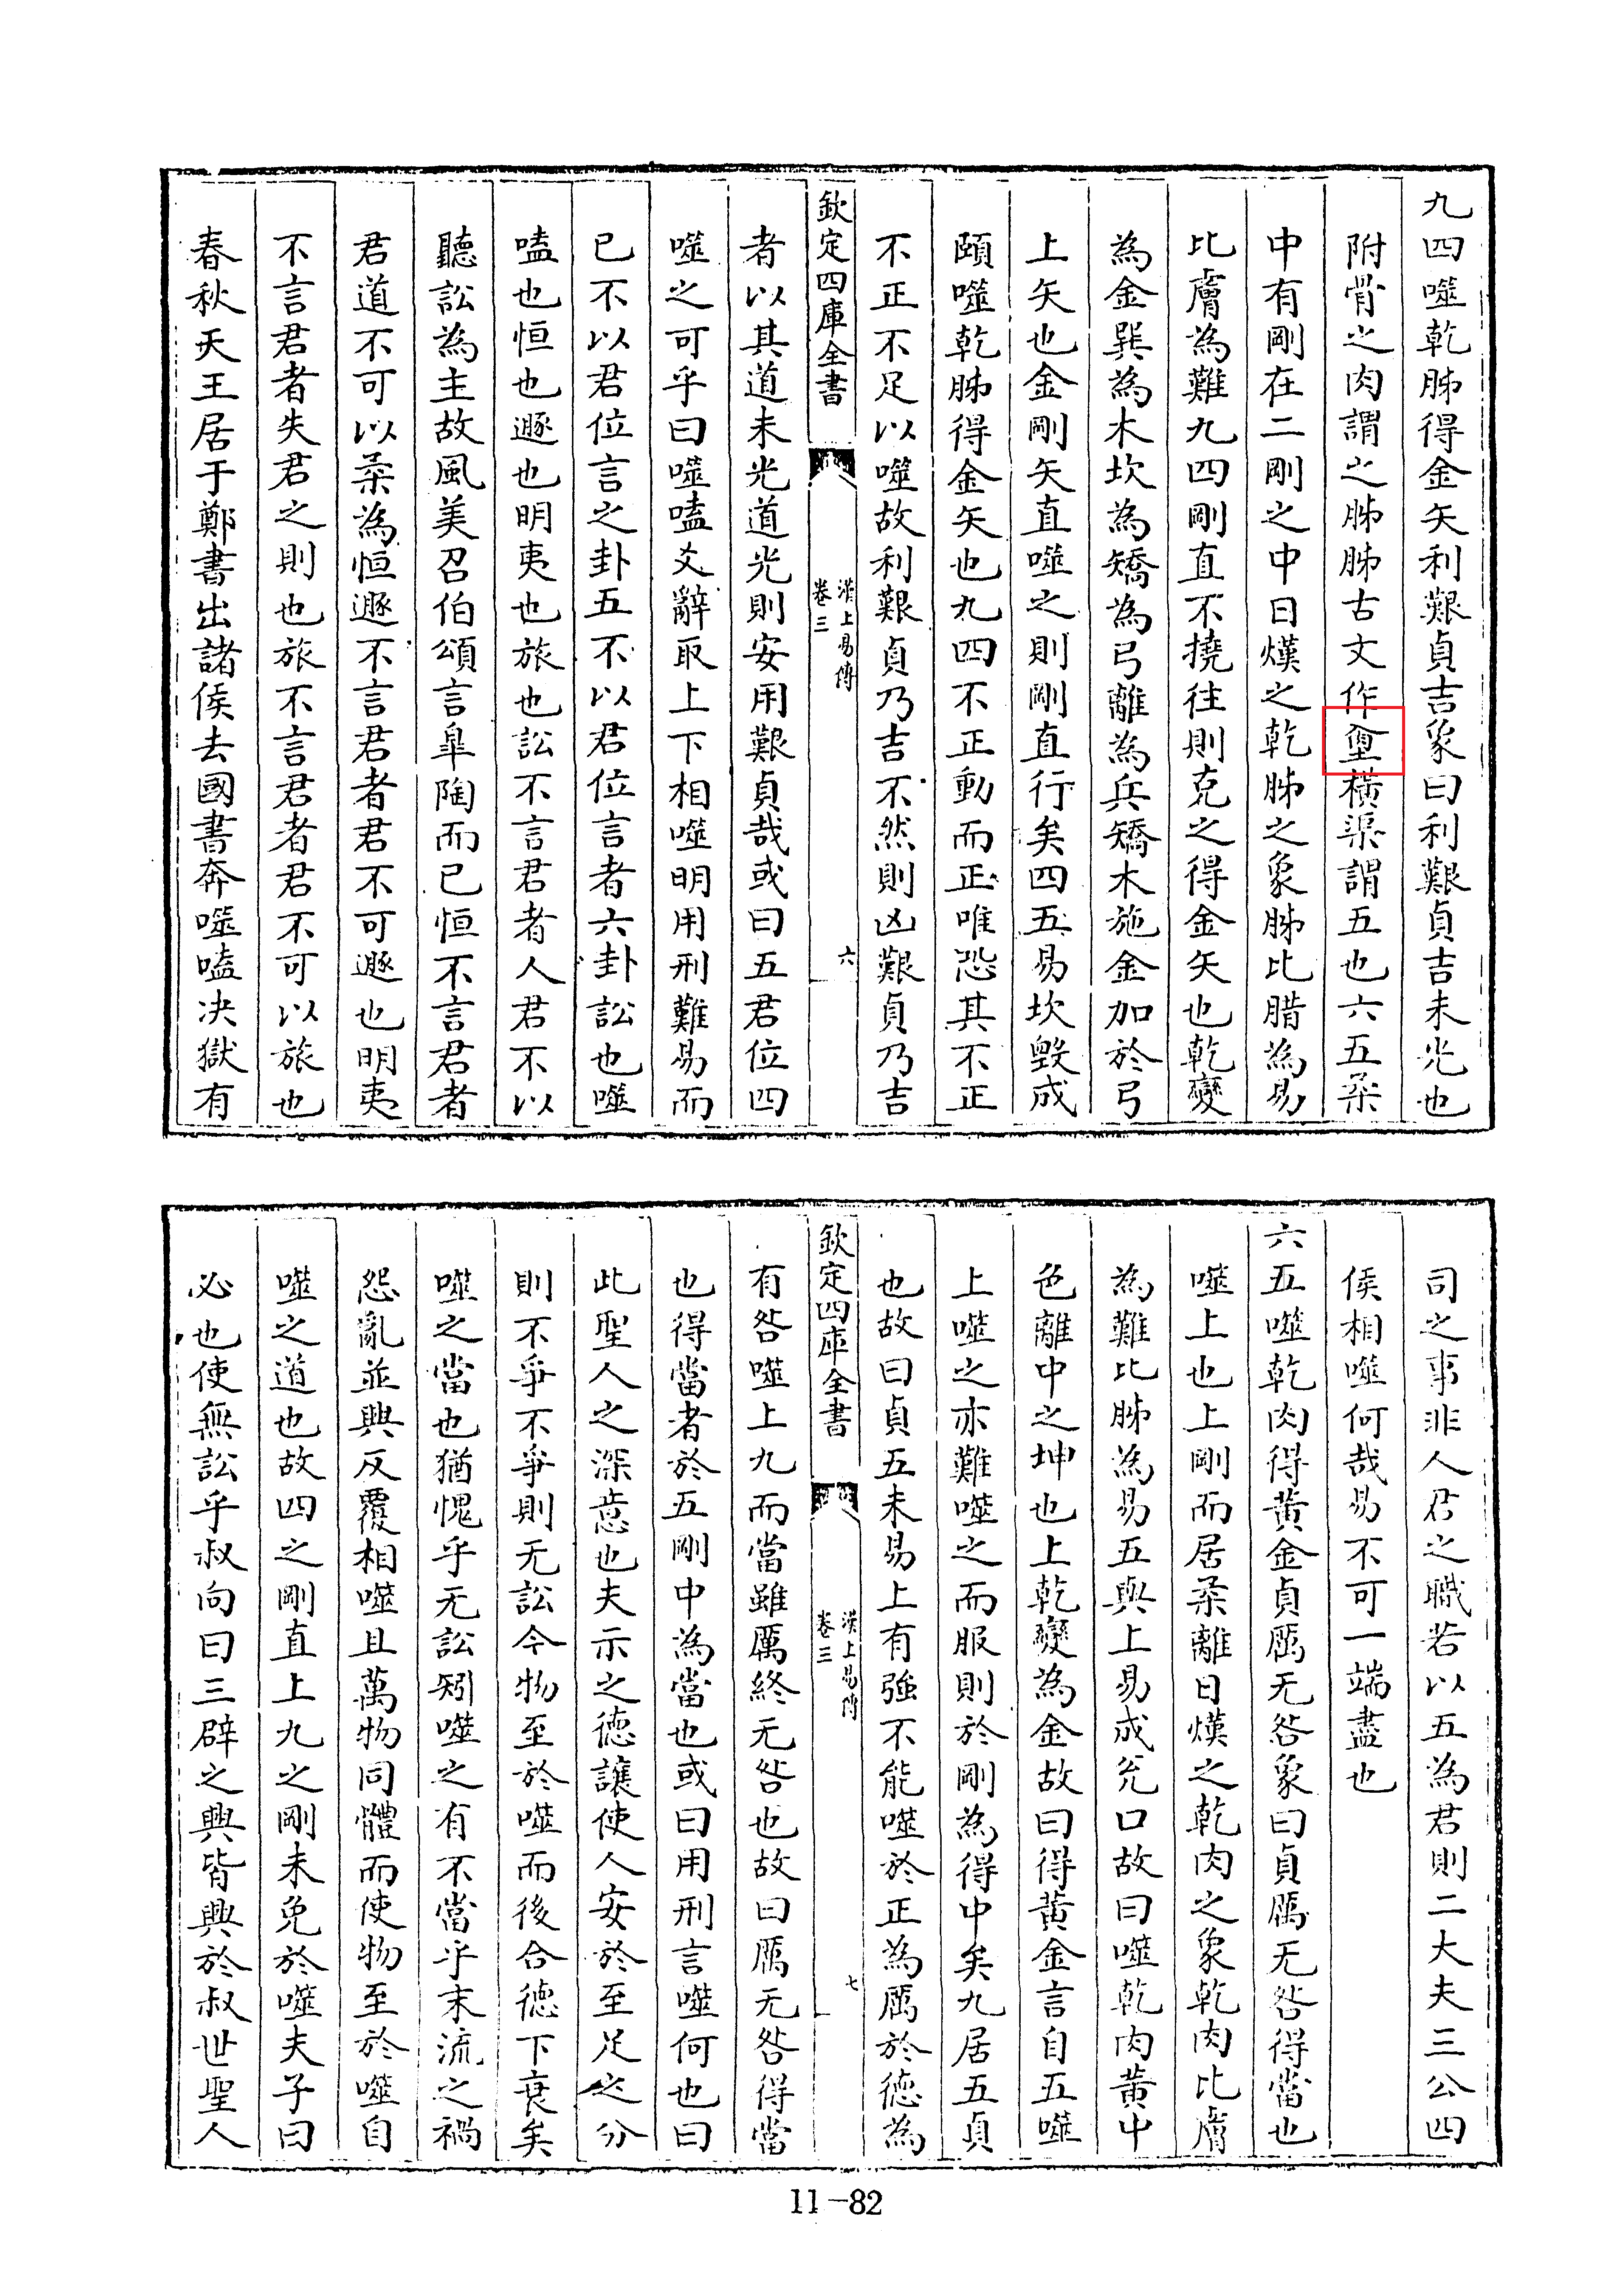 九四噬乾胏得金矢利艱貞吉象曰利艱貞吉未光也
附骨之肉謂之胏胏古文作橫渠謂五也六五柔
中有剛在二剛之中日熯之乾胏之象胏比腊為易
比膚為難九四剛直不撓往則克之得金矢也乾變
為金巽為木坎為矯為弓離為兵矯木施金加於弓
上矢也金剛矢直噬之則剛直行矣四五易坎毀成
頤噬乾胏得金矢也九四不正動而正唯恐其不正
不正不足以噬故利艱貞乃吉不然則凶艱貞乃吉
欽定四庫全書 漢上易傳 卷三 六
者以其道未光道光則安用艱貞哉或曰五君位四
噬之可乎曰噬嗑爻辭取上下相噬明用刑難易而
已不以君位言之卦五不以君位言者六卦訟也噬
嗑也恒也遯也明夷也旅也訟不言君者人君不以
聽訟為主故風美召伯頌言臯陶而已恒不言君者
君道不可以柔為恒遯不言君者君不可遯也明夷
不言君者失君之則也旅不言君者君不可以旅也
春秋天王居于鄭書出諸侯去國書奔噬嗑決獄有
司之事非人君之職若以五為君則二大夫三公四
侯相噬何哉易不可一端盡也
六五噬乾肉得黃金貞厲无咎象曰貞厲无咎得當也
噬上也上剛而居柔離日熯之乾肉之象乾肉比膚
為難比胏為易五與上易成兊口故曰噬乾肉黃中
色離中之坤也上乾變為金故曰得黃金言自五噬
上噬之亦難噬之而服則於剛為得中矣九居五貞
也故曰貞五未易上有強不能噬於正為厲於德為
欽定四庫全書 漢上易傳 卷三 七
有咎噬上九而當雖厲終无咎也故曰厲无咎得當
也得當者於五剛中為當也或曰用刑言噬何也曰
此聖人之深意也夫示之德讓使人安於至足之分
則不爭不爭則无訟今物至於噬而後合德下衰矣
噬之當也猶愧乎无訟矧噬之有不當乎末流之禍
怨亂並興反覆相噬且萬物同體而使物至於噬自
噬之道也故四之剛直上九之剛未免於噬夫子曰
必也使無訟乎叔向曰三辟之興皆興於叔世聖人
11-82